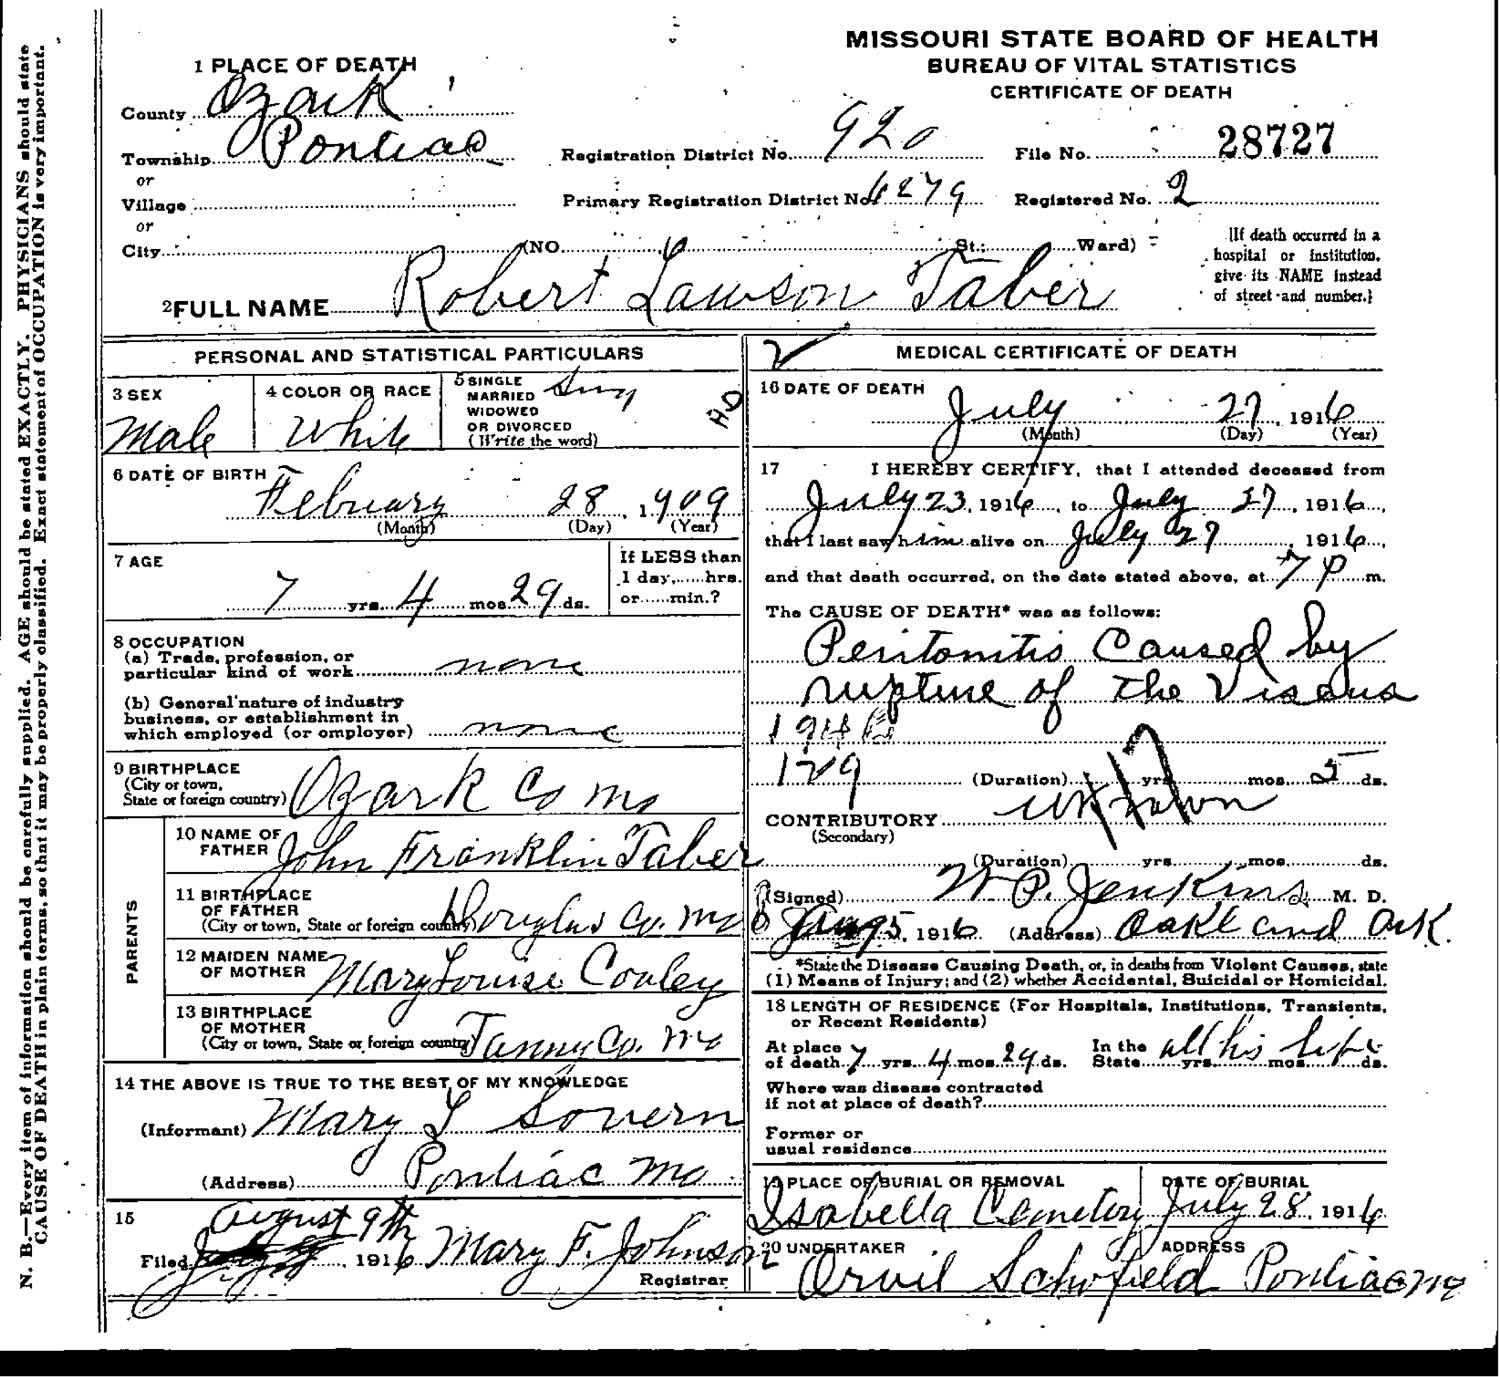 MISSOURI STATE BOARD OF HEALTH
BUREAU OF VITAL STATISTICS
CERTIFICATE OF DEATH
1 PLACE OF DEATH
County Ozark
Township Pontiac
or
Village
or
City (NO. St.; Ward)
Registration District No. 920 File No. 28727
Primary Registration District No. 6279 Registered No. 2
[If death occurred in a
hospital or institution,
give its NAME instead
of street and number.]
2 FULL NAME Robert Lawson Taber
PERSONAL AND STATISTICAL PARTICULARS
3 SEX
Male
4 COLOR OR RACE
White
5 SINGLE
MARRIED
WIDOWED
OR DIVORCED
(Write the word)
Sing
6 DATE OF BIRTH
February 28, 1909
(Month) (Day) (Year)
7 AGE
7 yrs. 4 mos. 29 ds.
If LESS than
1 day,......hrs.
or......min.?
8 OCCUPATION
(a) Trade, profession, or
particular kind of work none
(b) General nature of industry
business, or establishment in
which employed (or employer) none
9 BIRTHPLACE
(City or town,
State or foreign country) Ozark Co Mo
PARENTS
10 NAME OF
FATHER John Franklin Taber
11 BIRTHPLACE
OF FATHER
(City or town, State or foreign country) Douglas Co. Mo
12 MAIDEN NAME
OF MOTHER Mary Louise Cooley
13 BIRTHPLACE
OF MOTHER
(City or town, State or foreign country) Tanny Co. Mo
14 THE ABOVE IS TRUE TO THE BEST OF MY KNOWLEDGE
(Informant) Mary L Sovern
(Address) Pontiac Mo
15
August 9th
Filed 1916 Mary F. Johnson
Registrar
MEDICAL CERTIFICATE OF DEATH
16 DATE OF DEATH
July 27, 1916
(Month) (Day) (Year)
17 I HEREBY CERTIFY, that I attended deceased from
July 23, 1916, to July 27, 1916,
that I last saw him alive on July 27, 1916,
and that death occurred, on the date stated above, at 7 P m.
The CAUSE OF DEATH* was as follows:
Peritonitis Caused by
rupture of the Viscus
129 (Duration) yrs. mos. 5 ds.
CONTRIBUTORY unknown
(Secondary)
(Duration) yrs. mos. ds.
(Signed) W.P. Jenkins M. D.
5, 1916 (Address) Oakland Ark.
*State the Disease Causing Death, or, in deaths from Violent Causes, state
(1) Means of Injury; and (2) whether Accidental, Suicidal or Homicidal.
18 LENGTH OF RESIDENCE (For Hospitals, Institutions, Transients,
or Recent Residents)
At place
of death 7 yrs. 4 mos. 29 ds. In the
State all his life yrs. mos. ds.
Where was disease contracted
if not at place of death?
Former or
usual residence
19 PLACE OF BURIAL OR REMOVAL
Isabella Cemetery
DATE OF BURIAL
July 28, 1916
20 UNDERTAKER
Orvil Schofield
ADDRESS
Pontiac Mo
N. B.—Every item of information should be carefully supplied. AGE should be stated EXACTLY. PHYSICIANS should state
CAUSE OF DEATH in plain terms, so that it may be properly classified. Exact statement of OCCUPATION is very important.